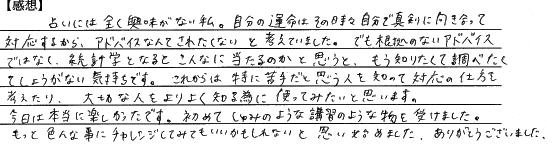 【感想】
占いには全く興味がない私。自分の運命はその時々自分で真剣に向き合って
対応するから、アドバイスなんてされたくないと考えていました。でも根拠のないアドバイス
ではなく、統計学となるとこんなに当たるのかと思うと、もう知りたくて調べたく
てしょうがない気持ちです。これからは特に苦手だと思う人を知って対応の仕方を
考えたり、大切な人をよりよく知る為に使ってみたいと思います。
今日は本当に楽しかったです。初めてしゅみのような講習のような物を受けました。
もっと色んな事にチャレンジしてみてもいいかもしれないと思い始めました。ありがとうございました。